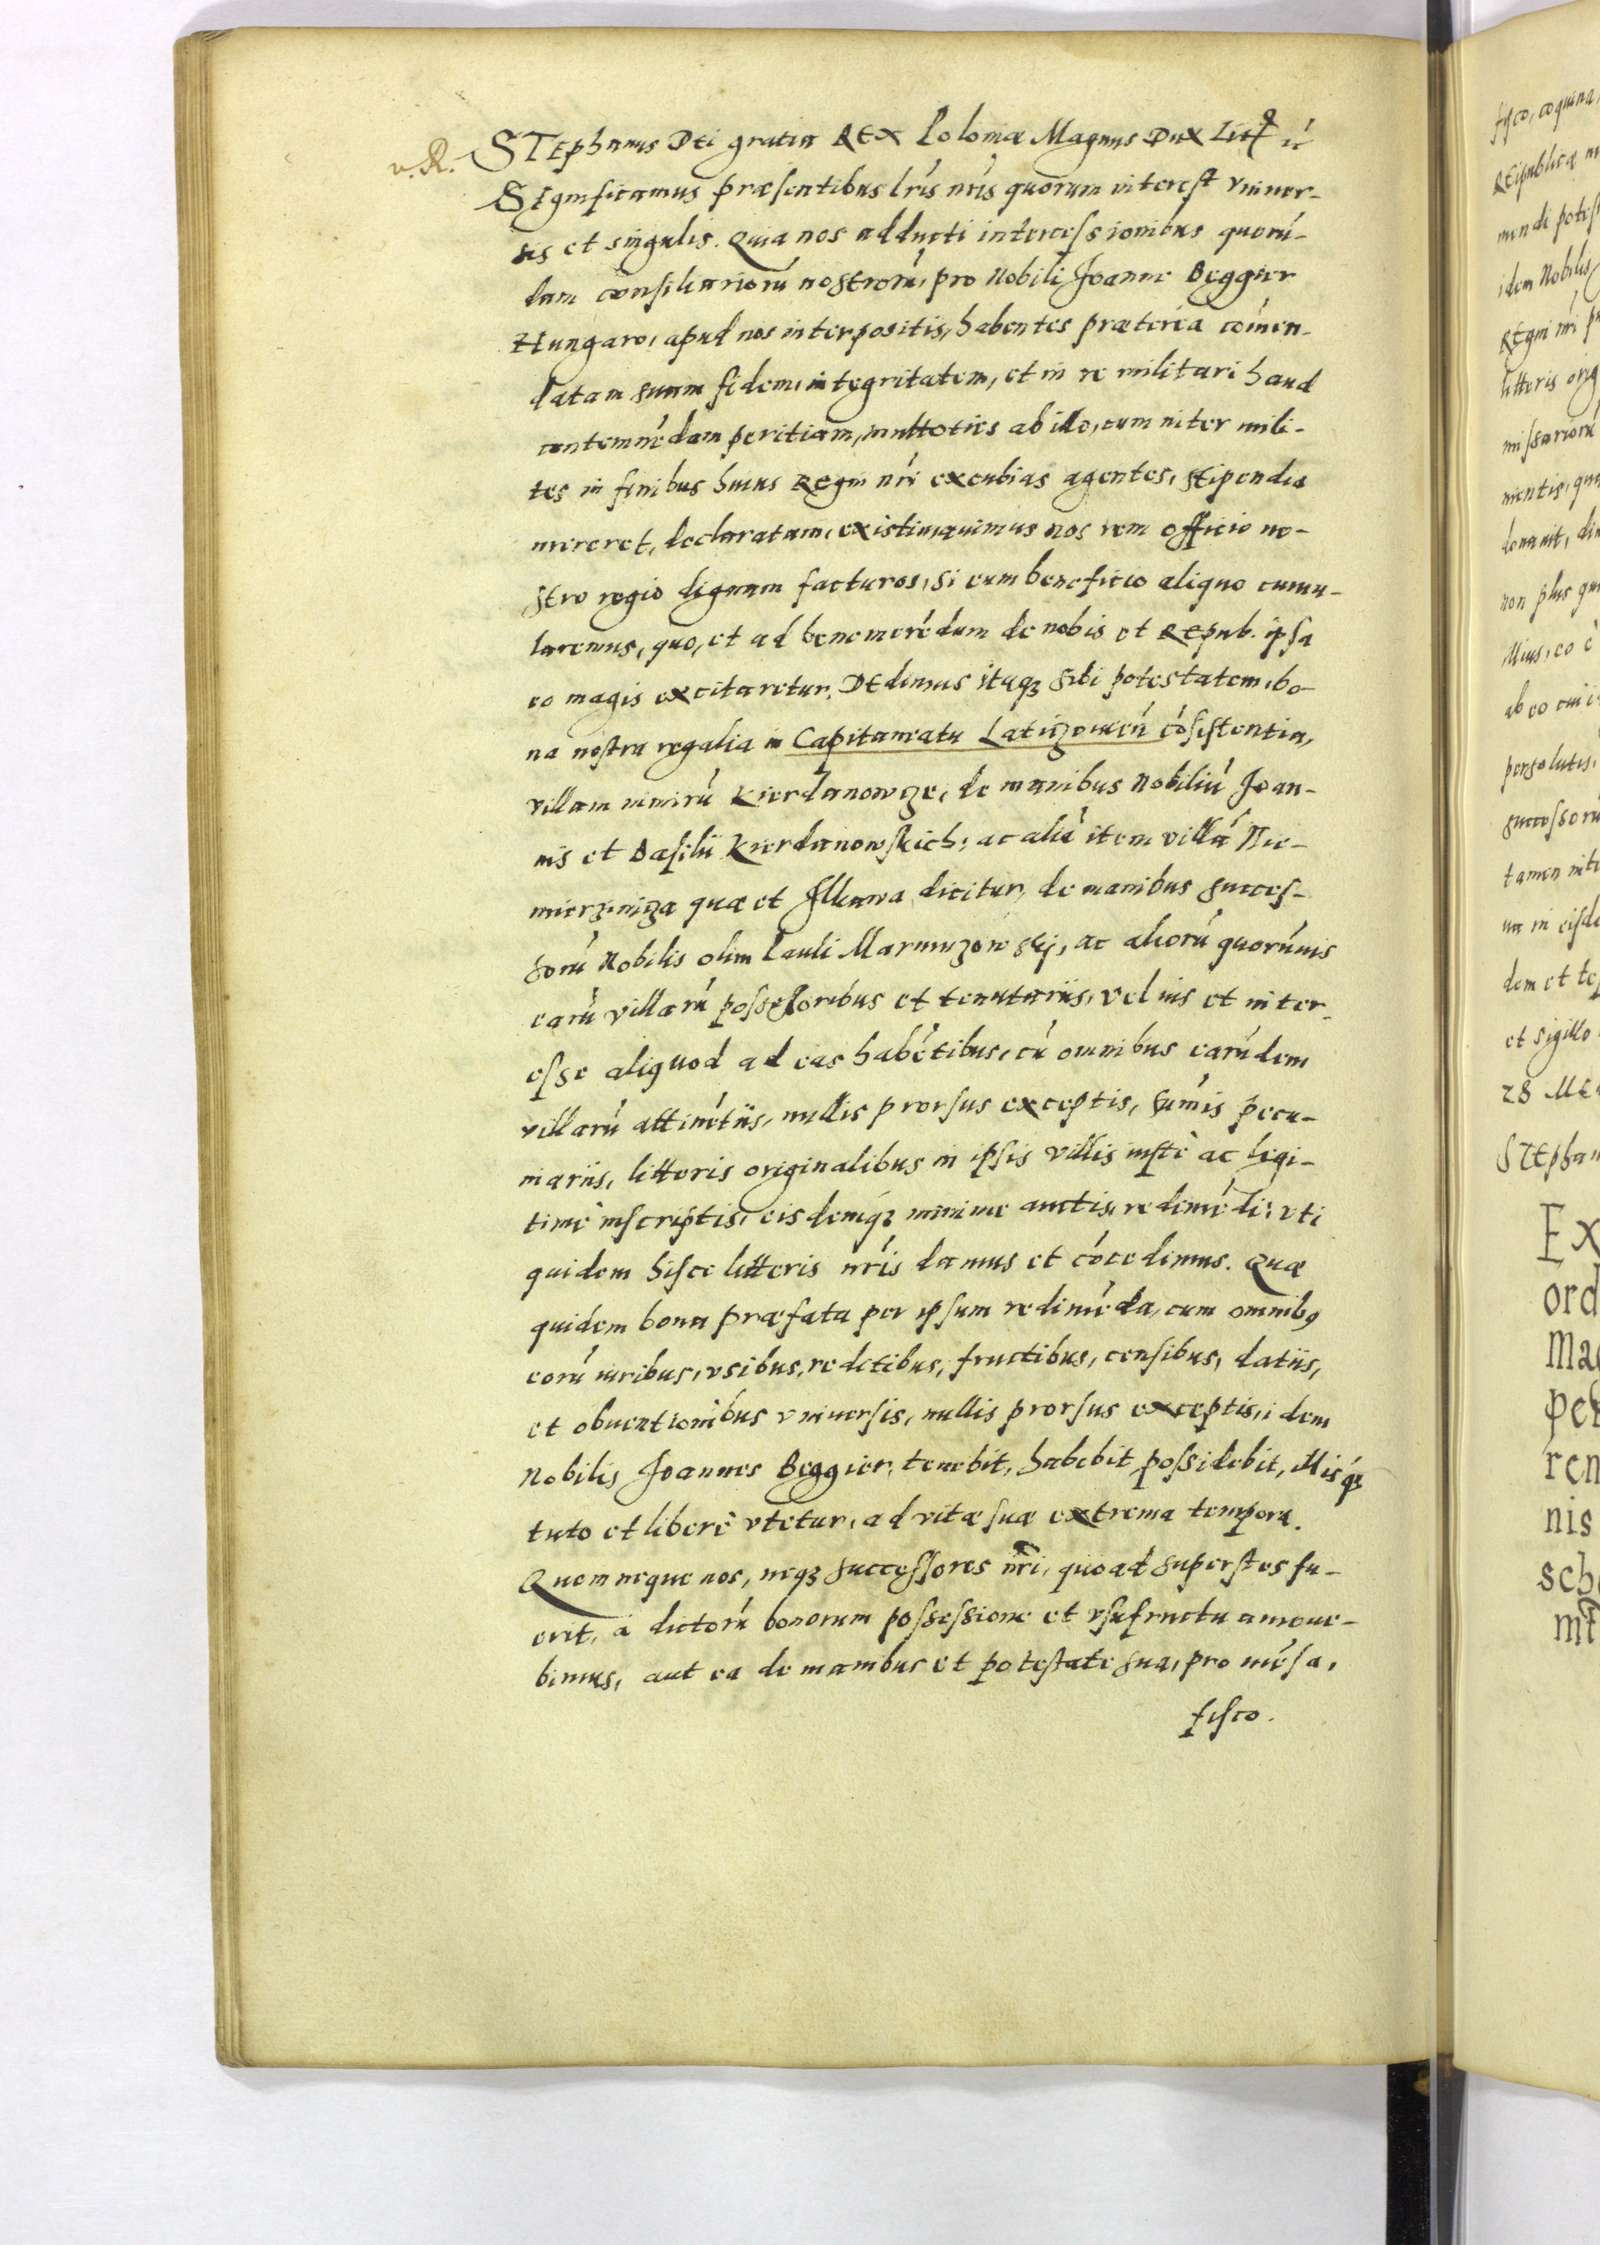 v. R.
STEphanus DEi gratia REX Poloniæ Magnus DuX Lit
SIgnificamus præsentibus lris nris quorum interest vniuer-
sis et singulis. Quia nos adducti intercessionibus quorú-
dam consiliariorú nostrorú, pro Nobili Joanne Beggier
Hungaro, apud nos interpositis, habentes præterea cómen-
datam suam fidem, integritatem, et in re militari haud
contemnédam peritiam, multoties ab illo, cum inter mili-
tes in finibus huius REgni nri excubias agentes, stipendia
mereret, declaratam, existimauimus nos rem officio no-
stro regio dignam facturos, si eum beneficio aliquo cumu-
laremus, quo, et ad benemerédum de nobis et REpub. ipsa
eo magis excitaretur. DEdimus itaqz sibi potestatem, bo-
na nostra regalia in Capitaneatu Laticzouień cósistentia,
villam nimirú Kierdanowcze, de manibus Nobiliú Joan-
nis et Basilii Kierdanowskich, ac aliá item villá Nie-
mierzincza quæ et Illkawa dicitur, de manibus succes-
sorú Nobilis olim Pauli Marmuzowskij, ac aliorú quorúuis
earú villarú possessoribus et tenutariis, vel ius et inter-
esse aliquod ad eas habétibus, cú omnibus earúdem
villarú attinétiis, nullis prorsus exceptis, súmis pecu-
niariis, litteris originalibus in ipsis villis iustè ac legi-
timè inscriptis, eisdemqz minime auctis, redimédi: vti
quidem hisce litteris nris damus et cócedimus. Quæ
quidem bona præfata per ipsum rediméda, cum omnibq
eorú iuribus, vsibus, reditibus, fructibus, censibus, datiis,
et obuentionibus vniuersis, nullis prorsus exceptis, idem
Nobilis Joannes Beggier, tenebit, habebit possidebit, illisqz
tuto et liberè vtetur, ad vitæ suæ extrema tempora.
Quem neque nos, neqz successores nri, quoad superstes fu-
erit, a dictorú bonorum possessione et vsufructu amoue-
bimus, aut ea de manibus et potestate sua, pro mésa,
fisco.
fisco, coquina,
REipublicæ
mendi potes
idem Nobilis
REgni nri
litteris orig
missariorú
nientis, qua
donauit,
non plus qua
illius, eo
ab eo cui
persolutis,
successorú
tamen
ua in eisde
dem et tes
et sigillo
28 ME
STEphan
Ex
ord
Mag
per
ren
nis
sch